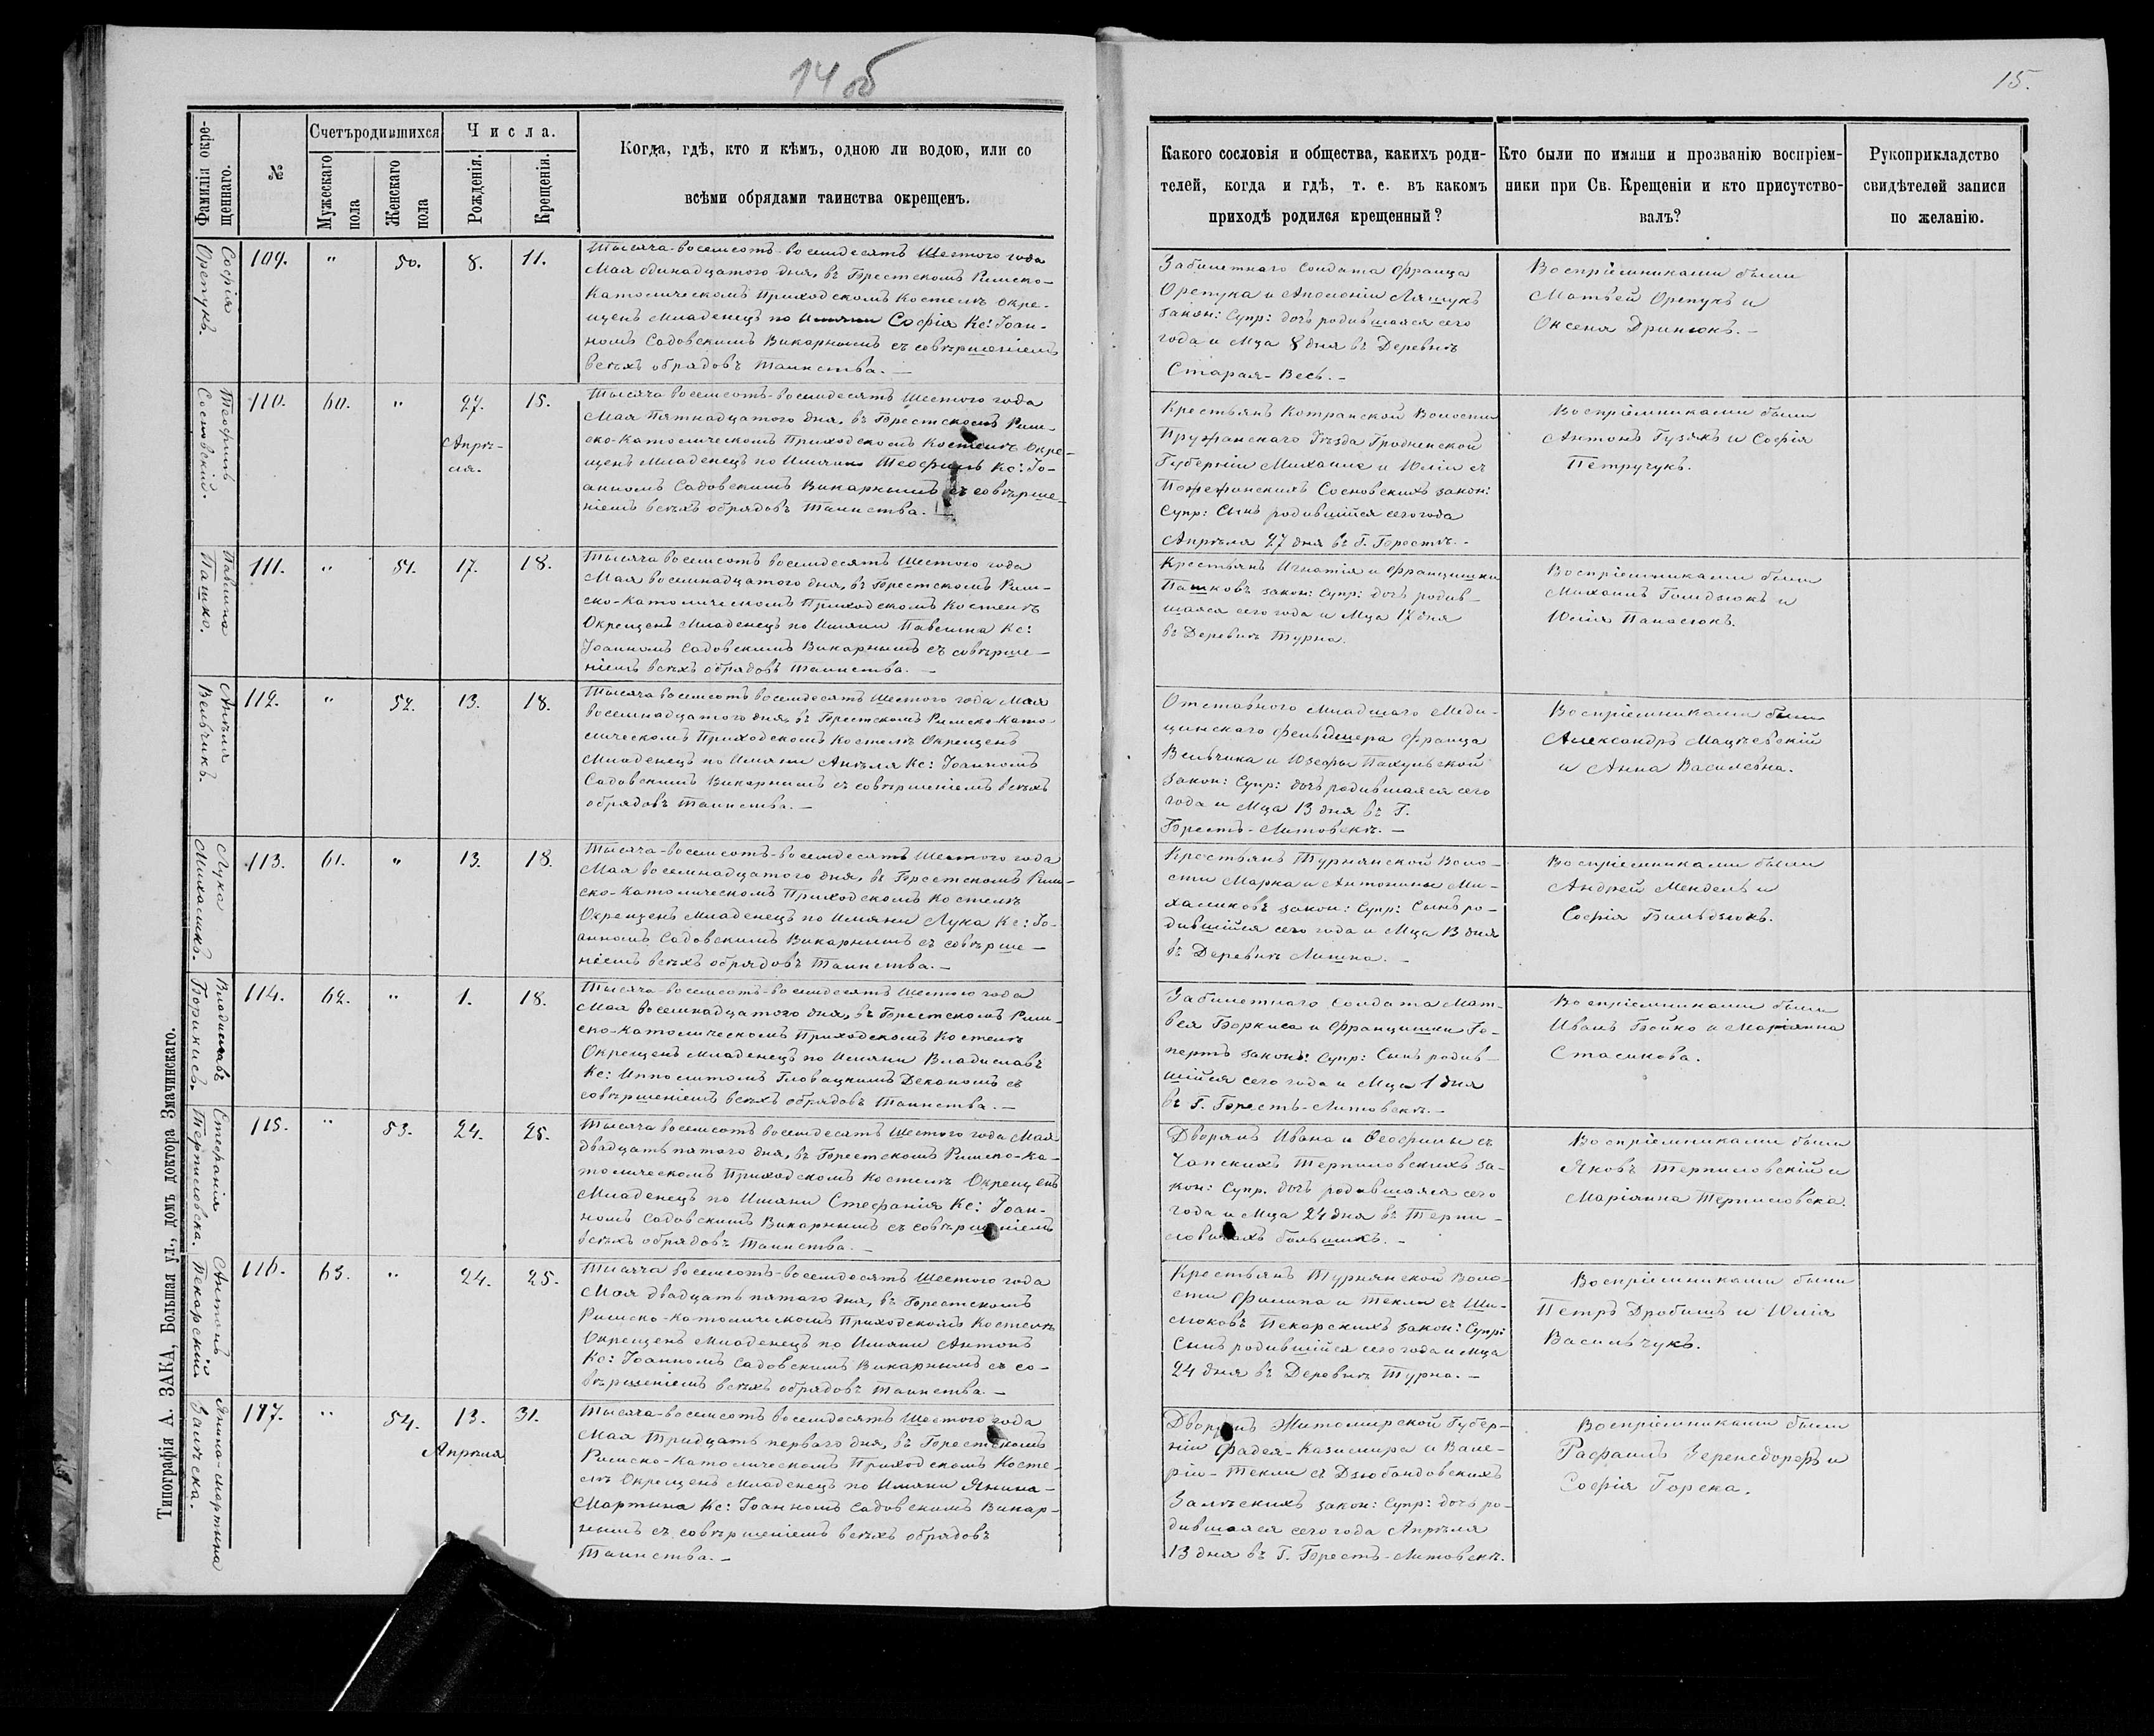 14 об
15.
Фамілія окре-
щеннаго.
№
Счетъ родившихся
Мужескаго
пола
Женскаго
пола
Числа.
Рожденія.
Крещенія.
Когда, гдѣ, кто и кѣмъ, одною ли водою, или со
всѣми обрядами таинства окрещенъ.
Какого сословія и общества, какихъ роди-
телей, когда и гдѣ, т. е. въ какомъ
приходѣ родился крещенный?
Кто были по имяни и прозванію воспріем-
ники при Св. Крещеніи и кто присутство-
валъ?
Рукоприкладство
свидѣтелей записи
по желанію.
Софія
Орепукъ.
109. " 50. 8. 11.
Тысяча-восемсотъ-восемдесятъ Шестого года
Мая одинадцатого дня, въ Брестскомъ Римско-
Католическомъ Приходскомъ Костелѣ Окре-
щенъ Младенецъ по Имяни Софія Кс: Іоан-
номъ Садовскимъ Викарнымъ съ совѣршеніемъ
всѣхъ обрядовъ Таинства. —
Забилетнаго Солдата Франца
Орепука и Аполоніи Ляшукъ
закон: Супр: дочь родившаяся сего
года и Мца 8 дня въ Деревнѣ
Старая-Весь. -
Воспріемниками были
Матвей Орепукъ и
Оксеня Дринюкъ. -
Теофиль
Сосновскій.
110. 60. " 27. 15.
Апрѣ-
ля.
Тысяча восемсотъ-восемдесятъ Шестого года
Мая Пятнадцатого дня, въ Брестскомъ Рим-
ско-Католическомъ Приходскомъ Костелѣ Окре-
щенъ Младенецъ по Имяни Теофиль Кс: Іо-
анномъ Садовскимъ Викарнымъ съ совѣрше-
ніемъ всѣхъ обрядовъ Таинства. —
Крестьянъ Котранской Волости
Пружанскаго Уѣзда Гродненской
Губерніи Михаила и Юліи съ
Пожежинскихъ Сосновскихъ закон:
Супр: Сынъ родившійся сего года
Апрѣля 27 дня въ Г. Брестѣ. -
Воспріемниками были
Антонъ Гузякъ и Софія
Петручукъ.
Павлина
Пашко.
111. " 51. 17. 18.
Тысяча восемсотъ восемдесятъ Шестого года
Мая восемнадцатого дня, въ Брестскомъ Рим-
ско-Католическомъ Приходскомъ Костелѣ
Окрещенъ Младенецъ по Имяни Павлина Кс:
Іоанномъ Садовскимъ Викарнымъ съ совѣрше-
ніемъ всѣхъ обрядовъ Таинства. —
Крестьянъ Игнатія и Францишки
Пашковъ закон: Супр: дочь родив-
шаяся сего года и Мца 17 дня
въ Деревнѣ Турна.
Воспріемниками были
Михаилъ Голидзюкъ и
Юлія Панасюкъ.
Анѣля
Вельчикъ.
112. " 52. 13. 18.
Тысяча восемсотъ восемдесятъ Шестого года Мая
восемнадцатого дня, въ Брестскомъ Римско-Като-
лическомъ Приходскомъ Костелѣ Окрещенъ
Младенецъ по Имяни Анѣля Кс: Іоанномъ
Садовскимъ Викарнымъ съ совѣршеніемъ всѣхъ
обрядовъ Таинства. —
Отставного Младшаго Меди-
цинскаго Фельдшера Франца
Вельчика и Юзефы Пахульской
закон: Супр: дочь родившаяся сего
года и Мца 13 дня въ Г.
Брестъ-Литовскѣ. —
Воспріемниками были
Александръ Мацѣевскій
и Анна Василевна.
Лука
Михаликъ.
113. 61. " 13. 18.
Тысяча-восемсотъ-восемдесятъ Шестого года
Мая восемнадцатого дня, въ Брестскомъ Рим-
ско-Католическомъ Приходскомъ Костелѣ
Окрещенъ Младенецъ по Имяни Лука Кс: Іо-
анномъ Садовскимъ Викарнымъ съ совѣрше-
ніемъ всѣхъ обрядовъ Таинства. —
Крестьянъ Турнянской Воло-
сти Марка и Антонины Ми-
халиковъ закон: Супр: Сынъ ро-
дившійся сего года и Мца 13 дня
въ Деревнѣ Лишна. —
Воспріемниками были
Андрей Мендель и
Софія Бильдзюкъ.
Владиславъ
Борикисъ.
114. 62. " 1. 18.
Тысяча-восемсотъ-восемдесятъ Шестого года
Мая восемнадцатого дня, въ Брестскомъ Рим-
ско-Католическомъ Приходскомъ Костелѣ
Окрещенъ Младенецъ по Имяни Владиславъ
Кс: Ипполитомъ Гловацкимъ Деканомъ съ
совѣршеніемъ всѣхъ обрядовъ Таинства. —
Забилетнаго Солдата Мат-
вея Боркиса и Францишки Го-
пертъ закон: Супр: Сынъ родив-
шійся сего года и Мца 1 дня
въ Г. Брестъ-Литовскѣ. —
Воспріемниками были
Иванъ Бойко и Маріянна
Стасикова.
Стефанія
Терписловска.
115. " 53. 24. 25.
Тысяча восемсотъ восемдесятъ Шестого года Мая
двадцатъ пятого дня, въ Брестскомъ Римско-Ка-
толическомъ Приходскомъ Костелѣ Окрещенъ
Младенецъ по Имяни Стефанія Кс: Іоан-
номъ Садовскимъ Викарнымъ съ совѣршеніемъ
всѣхъ обрядовъ Таинства. —
Дворянъ Ивана и Феофилы съ
Чапскихъ Терпиловскихъ за-
кон: Супр. дочь родившаяся сего
года и Мца 24 дня въ Терпи-
ловичахъ большихъ. -
Воспріемниками были
Яковъ Терпиловскій и
Маріянна Терпиловска.
Антонъ
Пекарскій
116. 63. " 24. 25.
Тысяча восемсотъ-восемдесятъ Шестого года
Мая двадцатъ пятаго дня, въ Брестскомъ
Римско-Католическомъ Приходскомъ Костелѣ
Окрещенъ Младенецъ по Имяни Антонъ
Кс: Іоанномъ Садовскимъ Викарнымъ съ со-
вѣршеніемъ всѣхъ обрядовъ Таинства. —
Крестьянъ Турнянской Воло-
сти Филипа и Текли съ Ши-
люковъ Пекарскихъ закон: Супр:
Сынъ родившійся сего года и Мца
24 дня въ Деревнѣ Турна. —
Воспріемниками были
Петръ Дробишъ и Юлія
Васильчукъ.
Янина-Мартына
Залѣска.
117. " 54. 13. 31.
Апрѣля
Тысяча-восемсотъ восемдесятъ Шестого года
Мая Тридцать перваго дня, въ Брестскомъ
Римско-Католическомъ Приходскомъ Косте-
лѣ Окрещенъ Младенецъ по Имяни Янина-
Мартына Кс: Іоанномъ Садовскимъ Викар-
нымъ съ совѣршеніемъ всѣхъ обрядовъ
Таинства. —
Дворянъ Житомирской Губер-
ніи Фадея-Казимира и Вале-
ріи-Текли съ Дзюбандовскихъ
Залѣскихъ закон: Супр: дочь ро-
дившаяся сего года Апрѣля
13 дня въ Г. Брестъ-Литовскѣ.
Воспріемниками были
Рафаилъ Зеренсдорфъ и
Софія Горска.
Типографія А. ЗАКА, Большая ул., домъ доктора Змачинскаго.